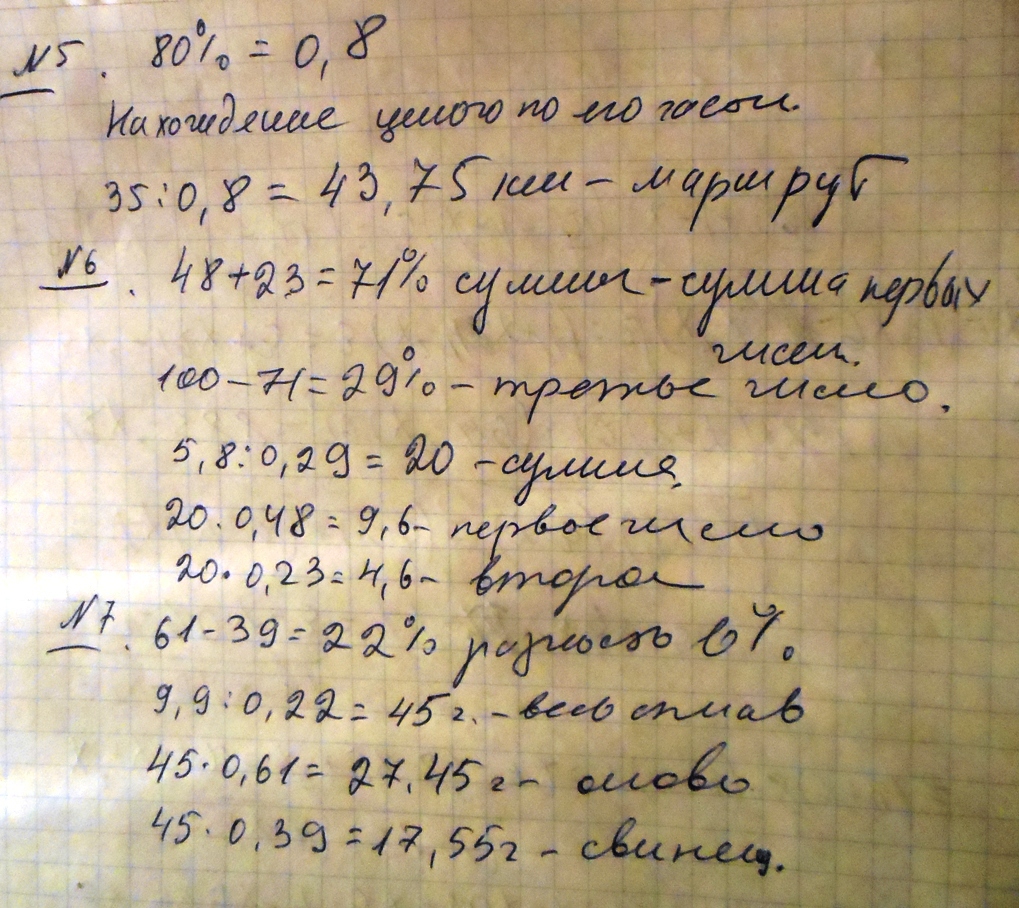 №5. 80% = 0,8
Нахождение целого по его части.
35:0,8 = 43,75 км - маршрут
№6. 48+23=71% суммы - сумма первых
чисел.
100-71=29% - третье число.
5,8:0,29=20 - сумма
20·0,48=9,6- первое число
20·0,23=4,6- второе
№7. 61-39=22% разность в %.
9,9:0,22=45г. - весь сплав
45·0,61=27.45г - олово
45·0,39=17,55г - свинец.